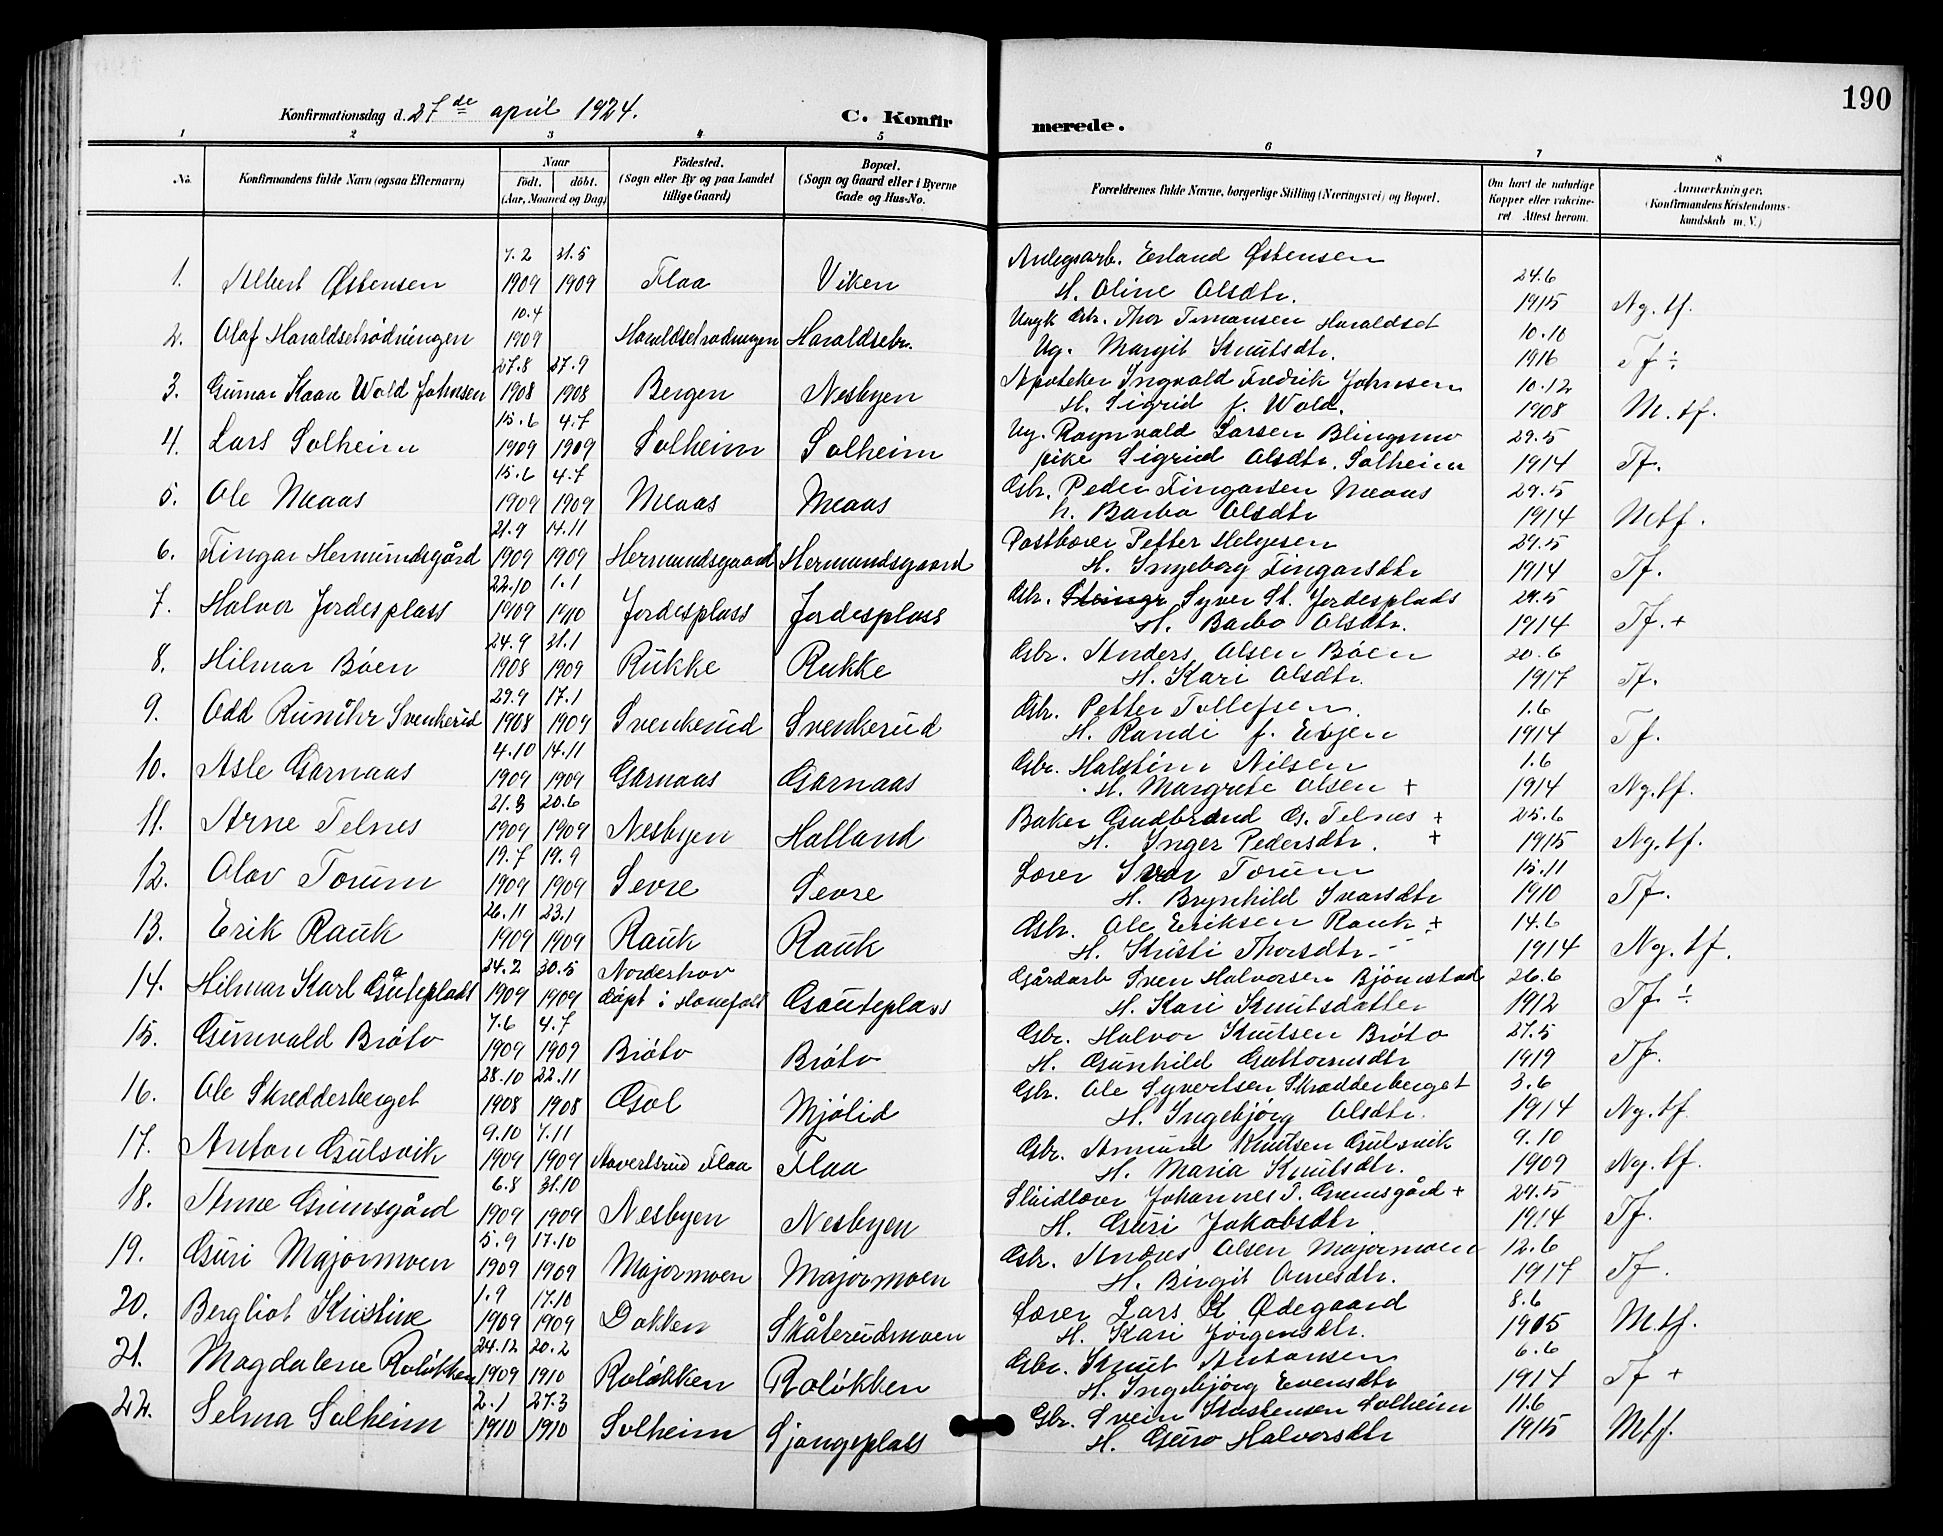 190
Konfirmationsdag d. 27de april 1924.
C. Konfirmerede.
1 2 3 4 5 6 7 8
No. Konfirmandens fulde Navn (ogsaa Efternavn)
Naar
födt. döbt.
(Aar, Maaned og Dag)
Födested.
(Sogn eller By og paa Landet
tillige Gaard)
Bopæl.
(Sogn og Gaard eller i Byerne
Gade og Hus-No.
Forældrenes fulde Navne, borgerlige Stilling (Næringsvei) og Bopæl.
Om havt de naturlige
Kopper eller vakcine-
ret Attest herom.
Anmærkninger.
(Konfirmandens Kristendoms-
kundskab m. V.)
7.2 31.5 Anlegsarb. Erland Østensen
1. Albert Østensen 1909 1909 Flaa Viken H. Oline Olsdtr. 24.6 1915 Ng. tf.
10.4 Ungk Gbr. Thor Timansen Haraldset
2. Olaf Haraldsetrødningen 1909 Haraldsetrødningen Haraldsebr. Ug. Margit Knutsdtr. 10.10 1916 Tf ÷
27.8 27.9 Apoteker Ingvald Fredrik Johnsen
3. Gunnar Kaare Wold Johnsen 1908 1908 Bergen Nesbyen H. Sigrid f. Wold. 10.12 1908 M. tf.
15.6 4.7 Ug. Ragnvald Larsen Blingsmo
4. Lars Solheim 1909 1909 Solheim Solheim pike Sigrid Olsdtr. Solheim 29.5 1914 Tf.
15.6 4.7 Gbr. Peder Fingarsen Meaas
5. Ole Meaas 1909 1909 Meaas Meaas h. Barbo Olsdtr 29.5 1914 Mtf.
21.9 14.11 Postbærer Petter Helgesen
6. Fingar Hermundsgård 1909 1909 Hermundsgaard Hermundsgaard H. Ingeborg Fingarsdtr 29.5 1914 Tf.
22.10 1.1 Gbr. Syver St. Jordesplads
7. Halvor Jordesplass 1909 1910 Jordesplass Jordesplass H. Barbo Olsdtr. 29.5 1914 Tf. +
24.9 31.1 Gbr. Anders Olsen Bøen
8. Hilmar Bøen 1908 1909 Rukke Rukke H. Kari Olsdtr. 20.6 1917 Tf.
29.9 17.1 Gbr. Petter Tollefsen.
9. Odd Runåhr Svenkerud 1908 1909 Svenkerud Svenkerud H. Randi f. Evjen 1.6 1914 Tf.
4.10 14.11 Gbr. Halstein Nilsen
10. Asle Garnaas 1909 1909 Garnaas Garnaas H. Margrete Olsen + 1.6 1914 Ng. tf.
21.3 20.6 Baker Gudbrand G. Telnes +
11. Arne Telnes 1909 1909 Nesbyen Halland H. Inger Pedersdtr. + 25.6 1915 Ng. tf.
19.7 19.9 Lærer Ivar Torum
12. Olav Torum 1909 1909 Sevre Sevre H. Brynhild Ivarsdtr 15.11 1910 Tf.
26.11 23.1 Gbr. Ole Eriksen Rauk +
13. Erik Rauk 1909 1909 Rauk Rauk H. Kristi Thorsdtr. 14.6 1914 Ng. tf.
24.2 30.5 Norderhov Gårdarb Sven Halvorsen Bjørnstad
14. Hilmar Karl Gauteplads 1909 1909 døpt i Hønefoss Gauteplass H. Kari Knutsdatter 26.6 1912 Tf ÷
7.6 4.7 Gbr. Halvor Knutsen Brøto
15. Gunvald Brøto 1909 1909 Brøto Brøto H. Gunhild Guttormsdtr 27.5 1919 Tf.
28.10 22.11 Gbr. Ole Syvertsen Skrædderberget
16. Ole Skrædderberget 1908 1908 Gol Mjølid H. Ingebjørg Olsdtr. 3.6 1914 Ng. tf.
9.10 7.11 Gbr. Amund Knutsen Gulsvik
17. Anton Gulsvik 1909 1909 Aavertsrud Flaa Flaa H. Maria Knutsdtr. 9.10 1909 Ng. tf.
6.8 31.10 Sløidlærer Johannes T. Grimsgård +
18. Anne Grimsgård 1909 1909 Nesbyen Nesbyen H. Guri Jakobsdtr. 29.5 1914 Tf.
5.9 17.10 Gbr. Andres Olsen Majormoen
19. Guri Majormoen 1909 1909 Majormoen Majormoen H. Birgit Arnesdtr. 12.6 1917 Tf.
1.9 17.10 Lærer Lars H Ødegaard
20. Bergliot Kristine 1909 1909 Dokken Skåterudmoen H. Kari Jørgensdtr. 8.6 1915 M.tf.
24.12 20.2 Gbr. Knut Antonsen
21. Magdalene Roløkken 1909 1910 Roløkken Roløkken H. Ingebjørg Evensdtr 6.6 1914 Tf +
2.1 27.3 Gbr. Svein Solheim
22. Selma Solheim 1910 1910 Solheim Sjongeplass H. Guro Halvorsdtr 11.6 1915 Mtf.